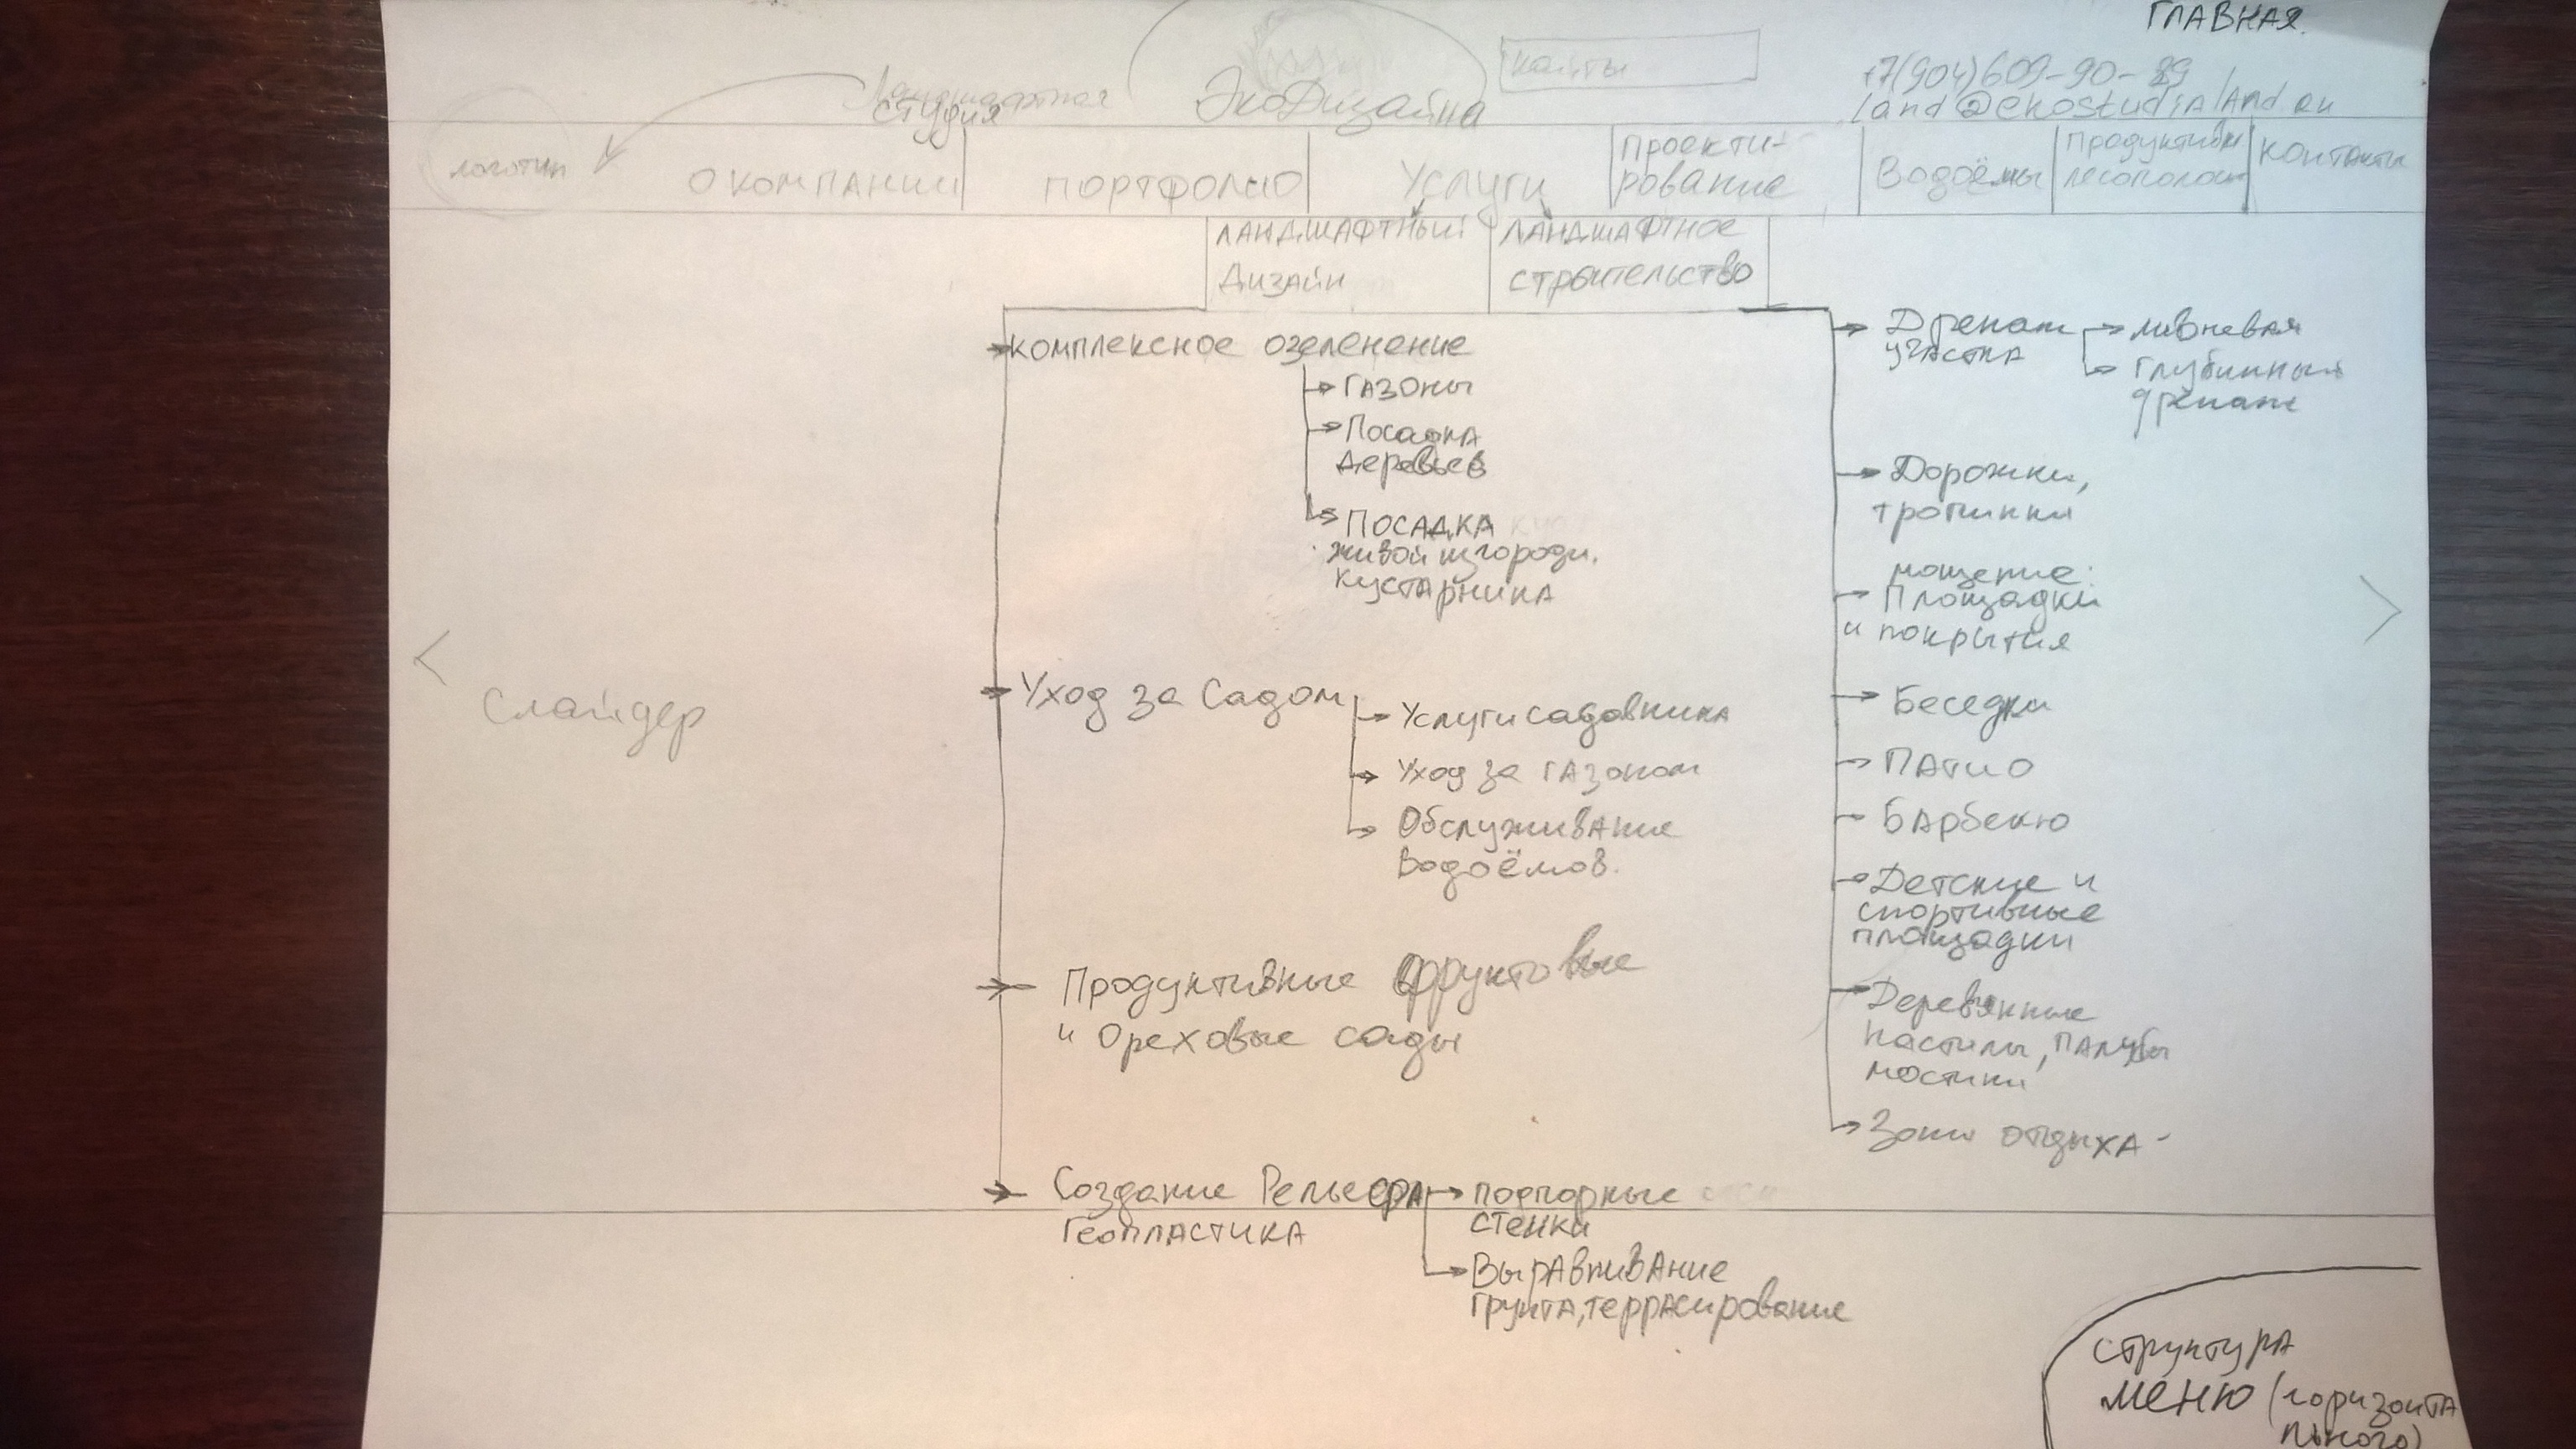 ГЛАВНАЯ.
найти
+7(904)609-90-89
Ландшафтная
студия
ЭкоДизайна
land@ekostudialand.ru
логотип
О КОМПАНИИ
ПОРТФОЛИО
Услуги
Проекти-
рование
Водоёмы
Продуктивн
лесополосы
контакты
ЛАНДШАФТНЫЙ
Дизайн
ЛАНДШАФТНОЕ
строительство
Комплексное озеленение
Газоны
Посадка
деревьев
ПОСАДКА
живой изгороди.
кустарника
Слайдер
Уход за Садом
Услуги садовника
Уход за газоном
Обслуживание
водоёмов.
Продуктивные фруктовые
и Ореховые сады
Создание Рельефа
Геопластика
подпорные
стенки
Выравнивание
грунта, террасирование
Дренаж
участка
ливневая
глубинный
дренаж
Дорожки,
тропинки
мощение:
Площадки
и покрытия
Беседки
Патио
Барбекю
Детские и
спортивные
площадки
Деревянные
настилы, палубы
мостики
Зоны отдыха
структура
меню (горизонта
льного)